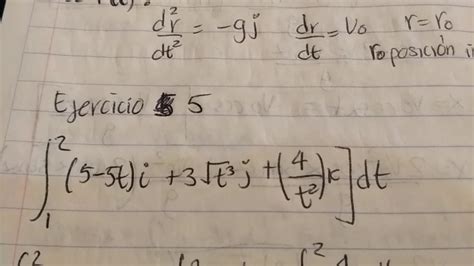 d²r/dt² = -gj dr/dt = v₀ r = r₀
r₀ posición
Ejercicio 5
∫₁² (5-5t)i + 3√t³ j + (4/t²)k] dt